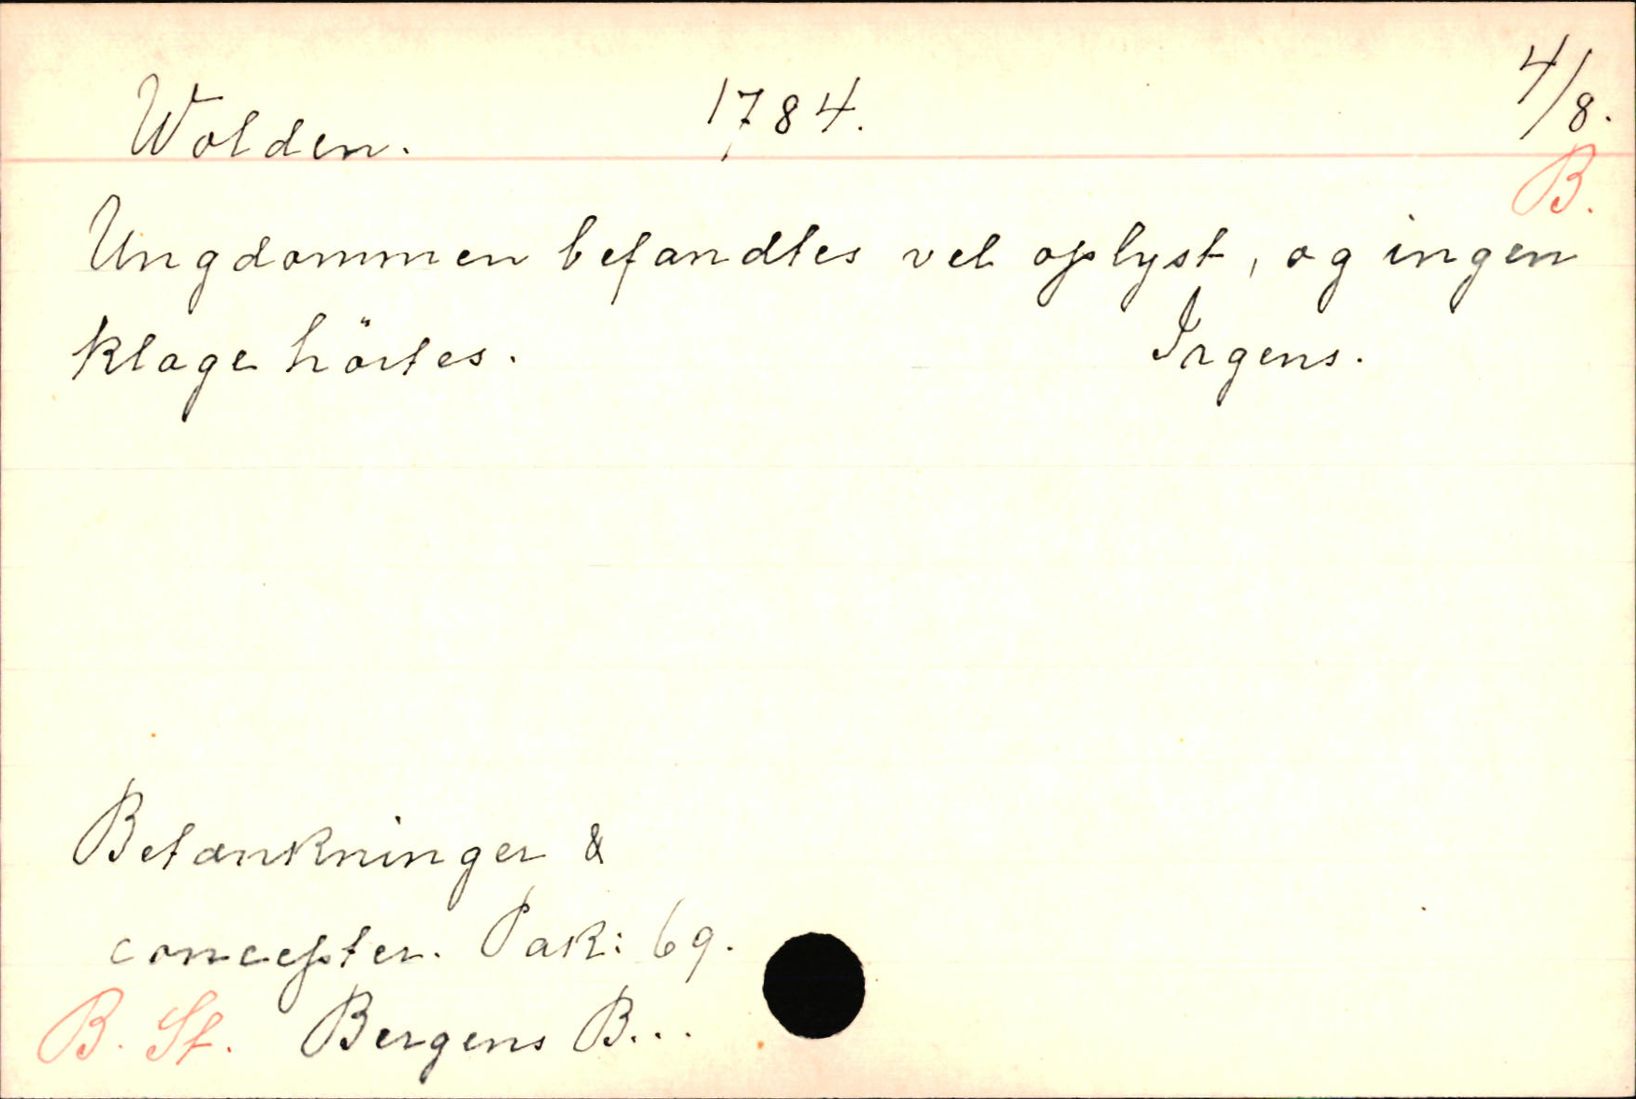 Wolden. 1784. 4/8.
B.
Ungdommen befandtes vel oplyst, og ingen
klage hörtes. Irgens.
Betænkninger &
concepter. Pak: 69.
B. St. Bergens B...